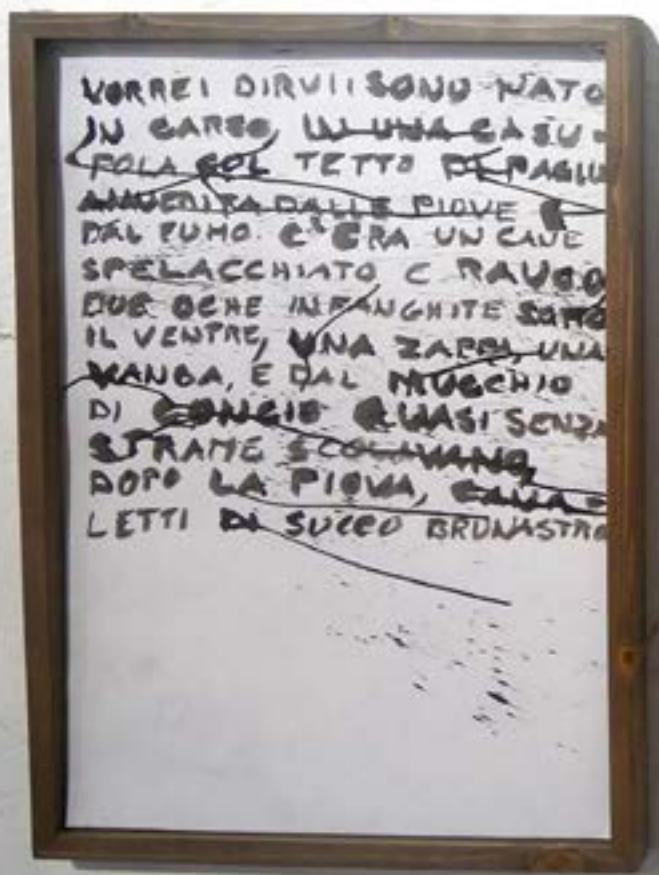 VORREI DIRVI: SONO NATO
IN CARSO, IN UNA CASU-
POLA COL TETTO DI PAGLIA
ANNERITA DALLE PIOVE E
DAL FUMO. C'ERA UN CANE
SPELACCHIATO E RAUCO
DUE OCHE INFANGHITE SOTTO
IL VENTRE, UNA ZAPPA, UNA
VANGA, E DAL MUCCHIO
DI CONCIO QUASI SENZA
STRAME SCOLAVANO,
DOPO LA PIOVA, CANA-
LETTI DI SUCCO BRUNASTRO